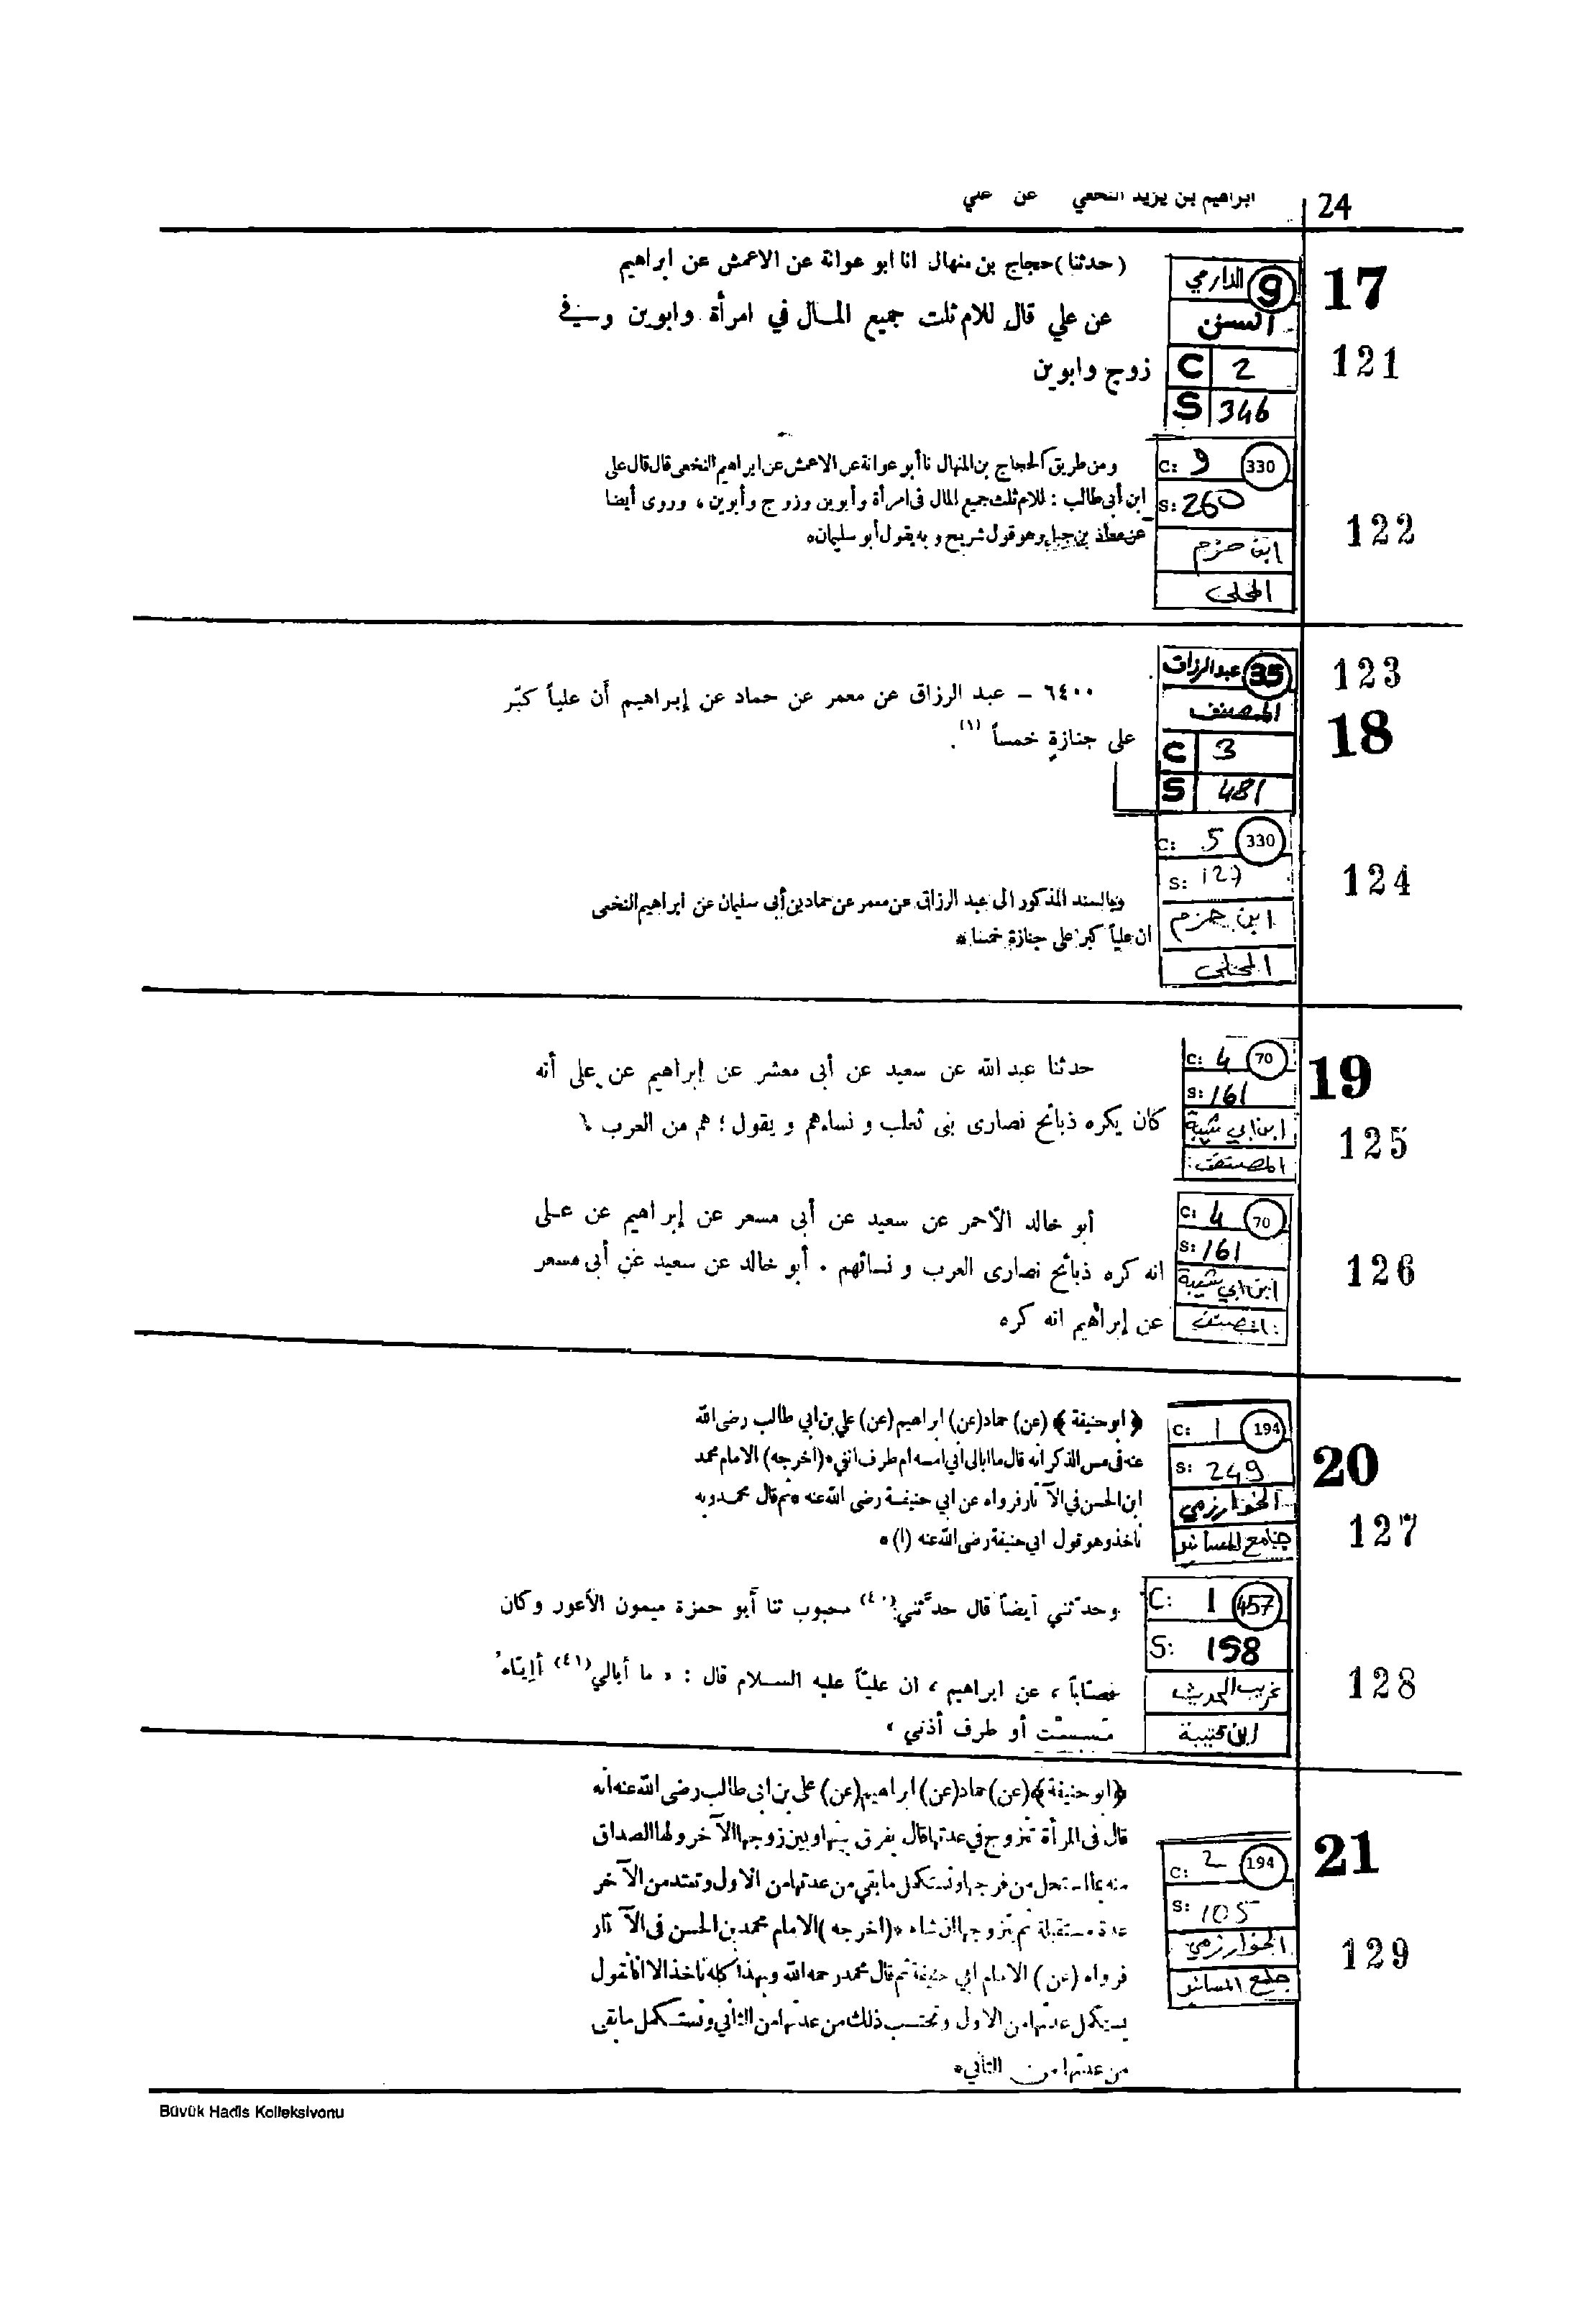 24
ابراهيم بن يزيد النخعي عن علي
17
9 الدارمي
السنن
C 2
S 346
121
(حدثنا) حجاج بن منهال انا ابو عوانة عن الاعمش عن ابراهيم
عن علي قال للام ثلث جميع المال في امرأة وابوين وفي
زوج وابوين
C: 9 330
S: 260
ابن حزم
المحلى
122
ومن طريق الحجاج بن المنهال نا أبو عوانة عن الاعمش عن ابراهيم النخعى قال قال على
ابن أبى طالب : للام ثلث جميع المال فى امرأة وأبوين وزوج وأبوين ، وروى أيضا
عن معاذ بن جبل وهو قول شريح وبه يقول أبو سليمان *
123
18
35 عبدالرزاق
المصنف
C 3
S 481
٦٤٠٠ - عبد الرزاق عن معمر عن حماد عن إبراهيم أن علياً كبّر
على جنازةٍ خمساً (١) .
C: 5 330
S: 127
ابن حزم
المحلى
124
وبالسند المذكور الى عبد الرزاق عن معمر عن حماد بن أبى سليمان عن ابراهيم النخعى
ان علياً كبر على جنازة خمسا *
19
C: 4 70
S: 161
ابن ابي شيبة
المصنف
125
حدثنا عبد الله عن سعيد عن أبى معشر عن إبراهيم عن على أنه
كان يكره ذبائح نصارى بنى ثعلب و نساءهم و يقول ؛ هم من العرب ١
C: 4 70
S: 161
ابن ابي شيبة
المصنف
126
أبو خالد الأحمر عن سعيد عن أبى مسعر عن إبراهيم عن على
انه كره ذبائح نصارى العرب و نسائهم . أبو خالد عن سعيد عن أبى مسعر
عن إبراهيم انه كره
C: 1 194
S: 249
الخوارزمي
جامع المساند
20
127
﴿ابو حنيفة﴾ (عن) حماد (عن) ابراهيم (عن) علي بن ابي طالب رضى الله
عنه فى مس الذكر انه قال ما ابالى أني امسه ام طرف انفي * (اخرجه) الامام محمد
ابن الحسن في الآثار فرواه عن ابي حنيفة رضى الله عنه * ثم قال محمد وبه
نأخذ وهو قول ابي حنيفة رضى الله عنه (١) *
C: 1 457
S: 158
غريب الحديث
ابن قتيبة
128
وحدّثني أيضاً قال حدّثني (٤٠) محبوب ثنا أبو حمزة ميمون الأعور وكان
قصّاباً ، عن ابراهيم ، ان عليّاً عليه السلام قال : « ما أبالي (٤١) أإيّاه
مَسِسْت أو طرف أذني »
C: 2 194
S: 105
الخوارزمي
جامع المساند
21
129
﴿ابو حنيفة﴾ (عن) حماد (عن) ابراهيم (عن) على بن ابى طالب رضى الله عنه انه
قال فى المرأة تتزوج في عدتها قال يفرق بينها وبين زوجها الآخر ولها الصداق
منه بما استحل من فرجها وتستكمل ما بقي من عدتها من الاول وتعتد من الآخر
عدة مستقبلة ثم يتزوجها ان شاء * (اخرجه) الامام محمد بن الحسن فى الآثار
فرواه (عن) الامام ابي حنيفة ثم قال محمد رحمه الله وبهذا كله نأخذ الا انا نقول
يستكمل عدتها من الاول وتحتسب ذلك من عدتها من الثاني وتستكمل ما بقى
من عدتها من الثاني *
Büyük Hadîs Kolleksiyonu